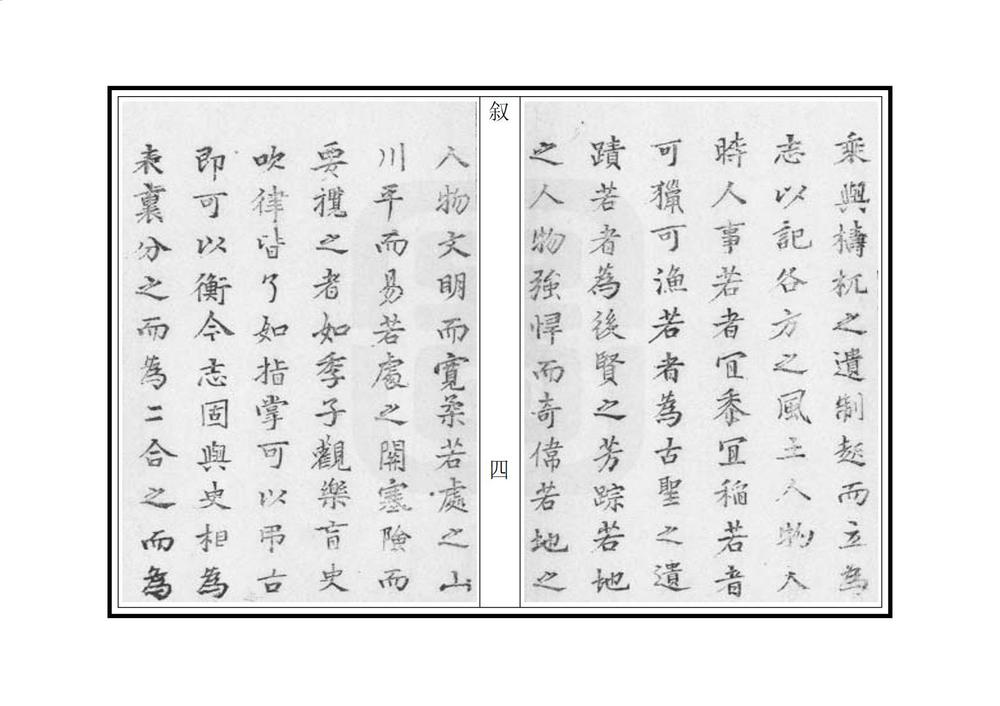 乘與檮杌之遺制起而立為
志以記各方之風土人物天
時人事若者宜黍宜稻若者
可獵可漁若者為古聖之遺
蹟若者為後賢之芳踪若地
之人物強悍而奇偉若地之
叙
四
人物文明而寬柔若處之山
川平而易若處之關塞險而
要襬之者如季子觀樂盲史
吹律皆了如指掌可以弔古
即可以衡今志固與史相為
表裏分之而為二合之而為